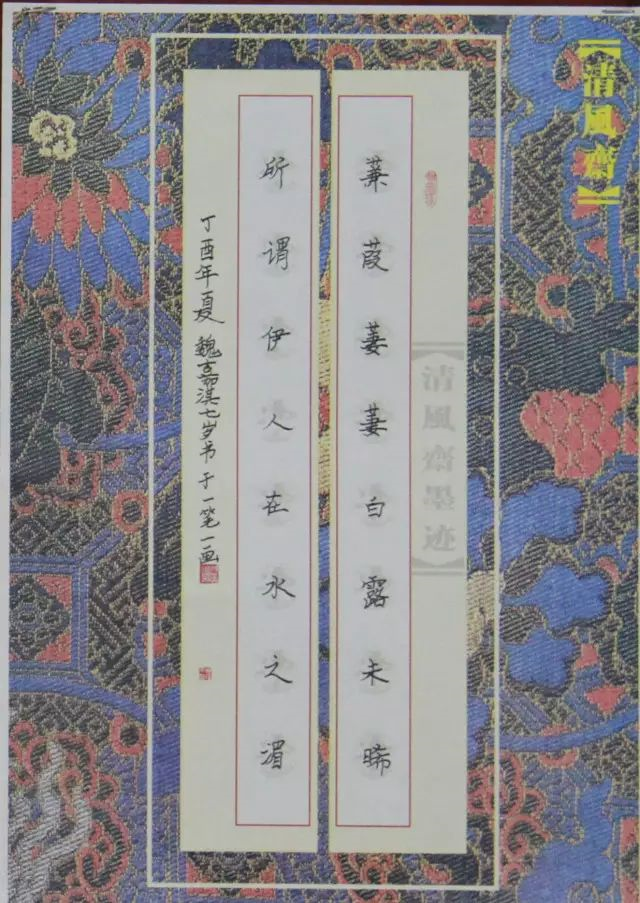 【清風齋】
蒹葭萋萋白露未晞
所谓伊人在水之湄
丁酉年夏魏嘉淇七岁书于一笔一画
【清風齋墨迹】